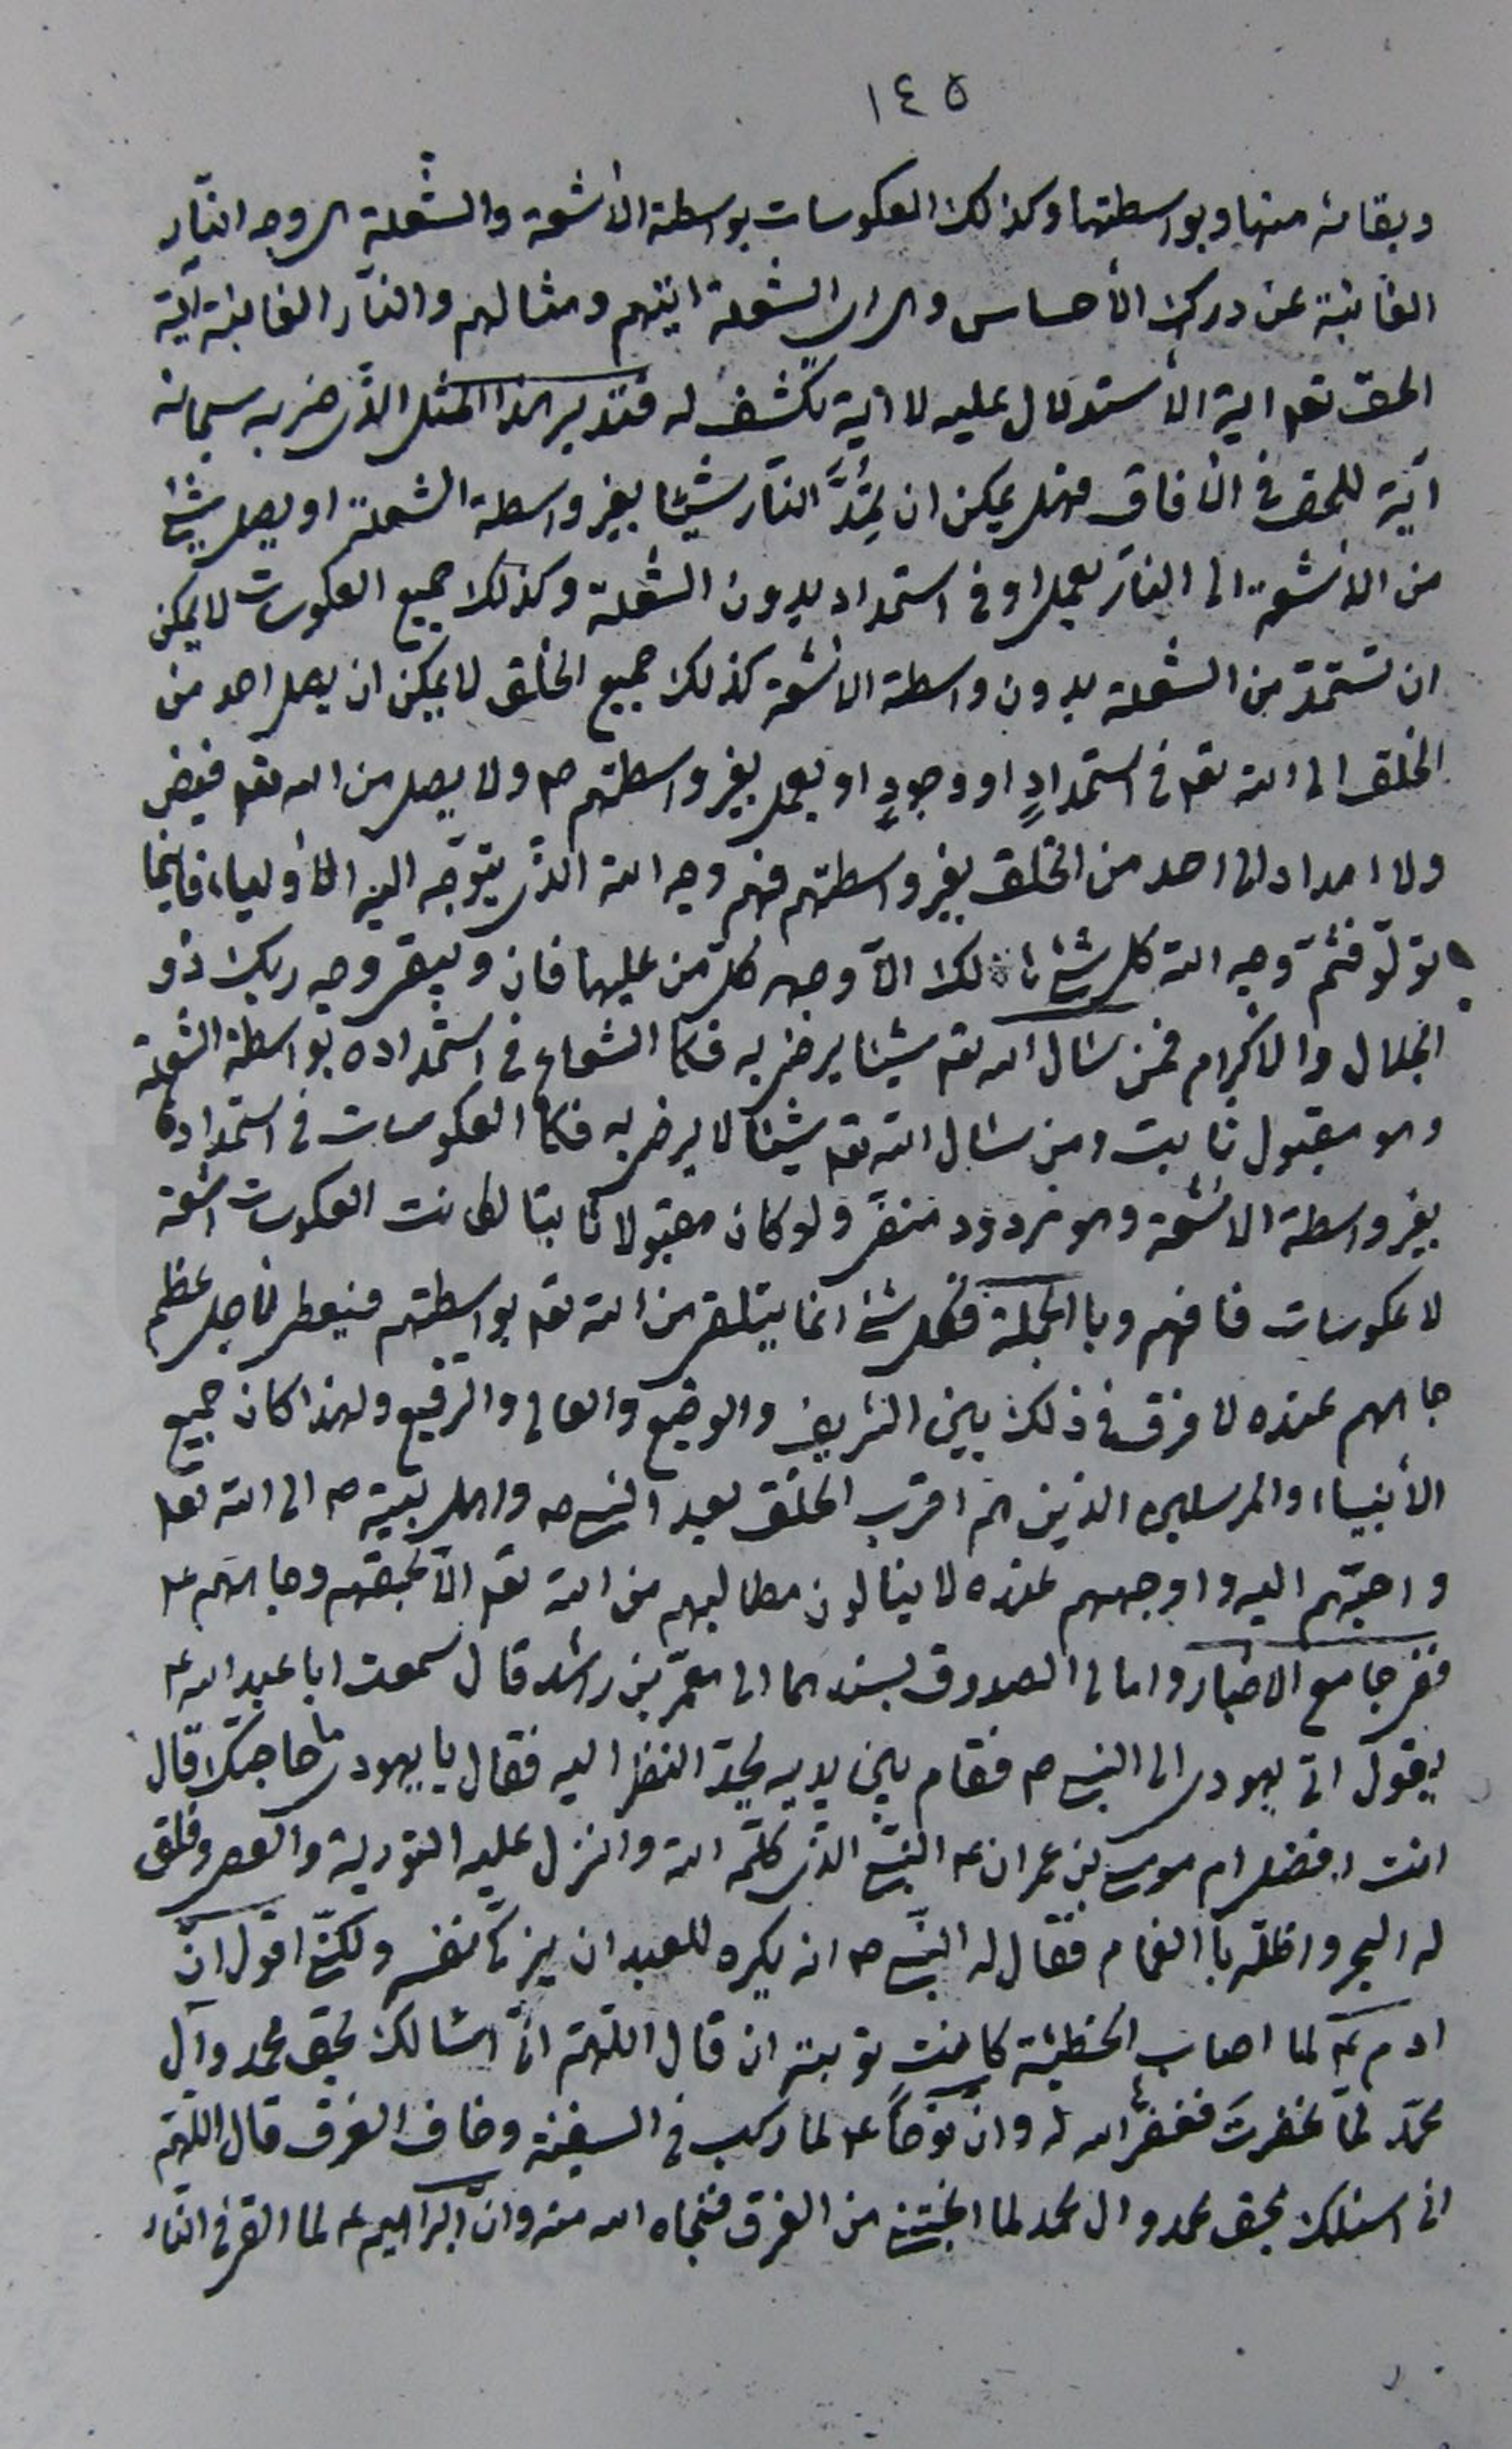 ١٤٥
وبقائه منها وبواسطتها وكذلك العكوسات بواسطة الأشعة والشعلة هي وجه النّار
الغائبة عن درك الأحساس وهي اي الشعلة ايتهم ومثالهم والنّار الغائبة آية
الحق تعـ اية الأستدلال عليه لا آية تكشف له فتدبر هذا المثل الذي ضربه سبحانه
آية للحق في الآفاق فهل يمكن ان يمُدَّ النّار شيئا بغير واسطة الشعلة او يصل شئ
من الأشعة الى النّار بعمل او في استمداد بدون الشعلة وكذلك جميع العكوسات لا يمكن
ان تستمدّ من الشعلة بدون واسطة الأشعة كذلك جميع الخلق لا يمكن ان يصل احد من
الخلق الى الله تعـ في استمدادٍ او وجودٍ او بعمل بغير واسطتهم صـ ولا يصل من الله تعـ فيض
ولا امداد الى احد من الخلق بغير واسطتهم فهم وجه الله الذي يتوجّه اليه الأولياء فاينما
تولّوا فثمّ وجه الله كل شئ هالك الّا وجهه كلّ من عليها فان ويبقى وجه ربك ذو
الجلال والاكرام فمن سأل الله تعـ شيئا يرضى به فكا الشعاع في استمداده بواسطة الشعلة
وهو مقبول ثابت ومن سأل الله تعـ شيئا لا يرضى به فكا العكوسات في استمداده
بغير واسطة الأشعة وهو مردود منفى ولو كان مقبولا ثابتا لكانت العكوسات اشعة
لا عكوسات فافهم وبا الجملة فكل شئ انما يتلقى من الله تعـ بواسطتهم فيعطى لأجل عظم
جاههم عنده لا فرق في ذلك بين الشريف والوضيع والعالى والرفيع ولهذا كان جميع
الأنبياء والمرسلين الذين هم اقرب الخلق بعد النبي صـ واهل بيته صـ الى الله تعـ
واحبّهم اليه واوجههم عنده لا ينالون مطالبهم من الله تعـ الّا بحقهم وجاههم عـ
ففى جامع الاخبار وامالى الصدوق بسندهما الى معمّر بن راشد قال سمعت ابا عبد الله عـ
يقول اتى يهودي الى النبي صـ فقام بين يديه يحدّ النظر اليه فقال يا يهودي ما حاجتك قال
انت افضل ام موسى بن عمران عـ النّبي الذي كلّمه الله وانزل عليه التورية والعصى وفلق
له البحر واظلّه با الغمام فقال له النّبي صـ انه يكره للعبد ان يزكّى نفسه ولكنّي اقول انّ
ادم عـ لما اصاب الخطيئة كانت توبته ان قال اللّهمّ انّى اسئالك بحق محمد وآل
محمّد لمّا غفرتَ فغفر الله له وان نوحاً عـ لما ركب في السفينة وخاف الغرق قال اللّهمّ
انى اسئلك بحق محمد وال محمد لما انجيتني من الغرق فنجاه الله منه وانّ ابراهيم عـ لما القى في النّار